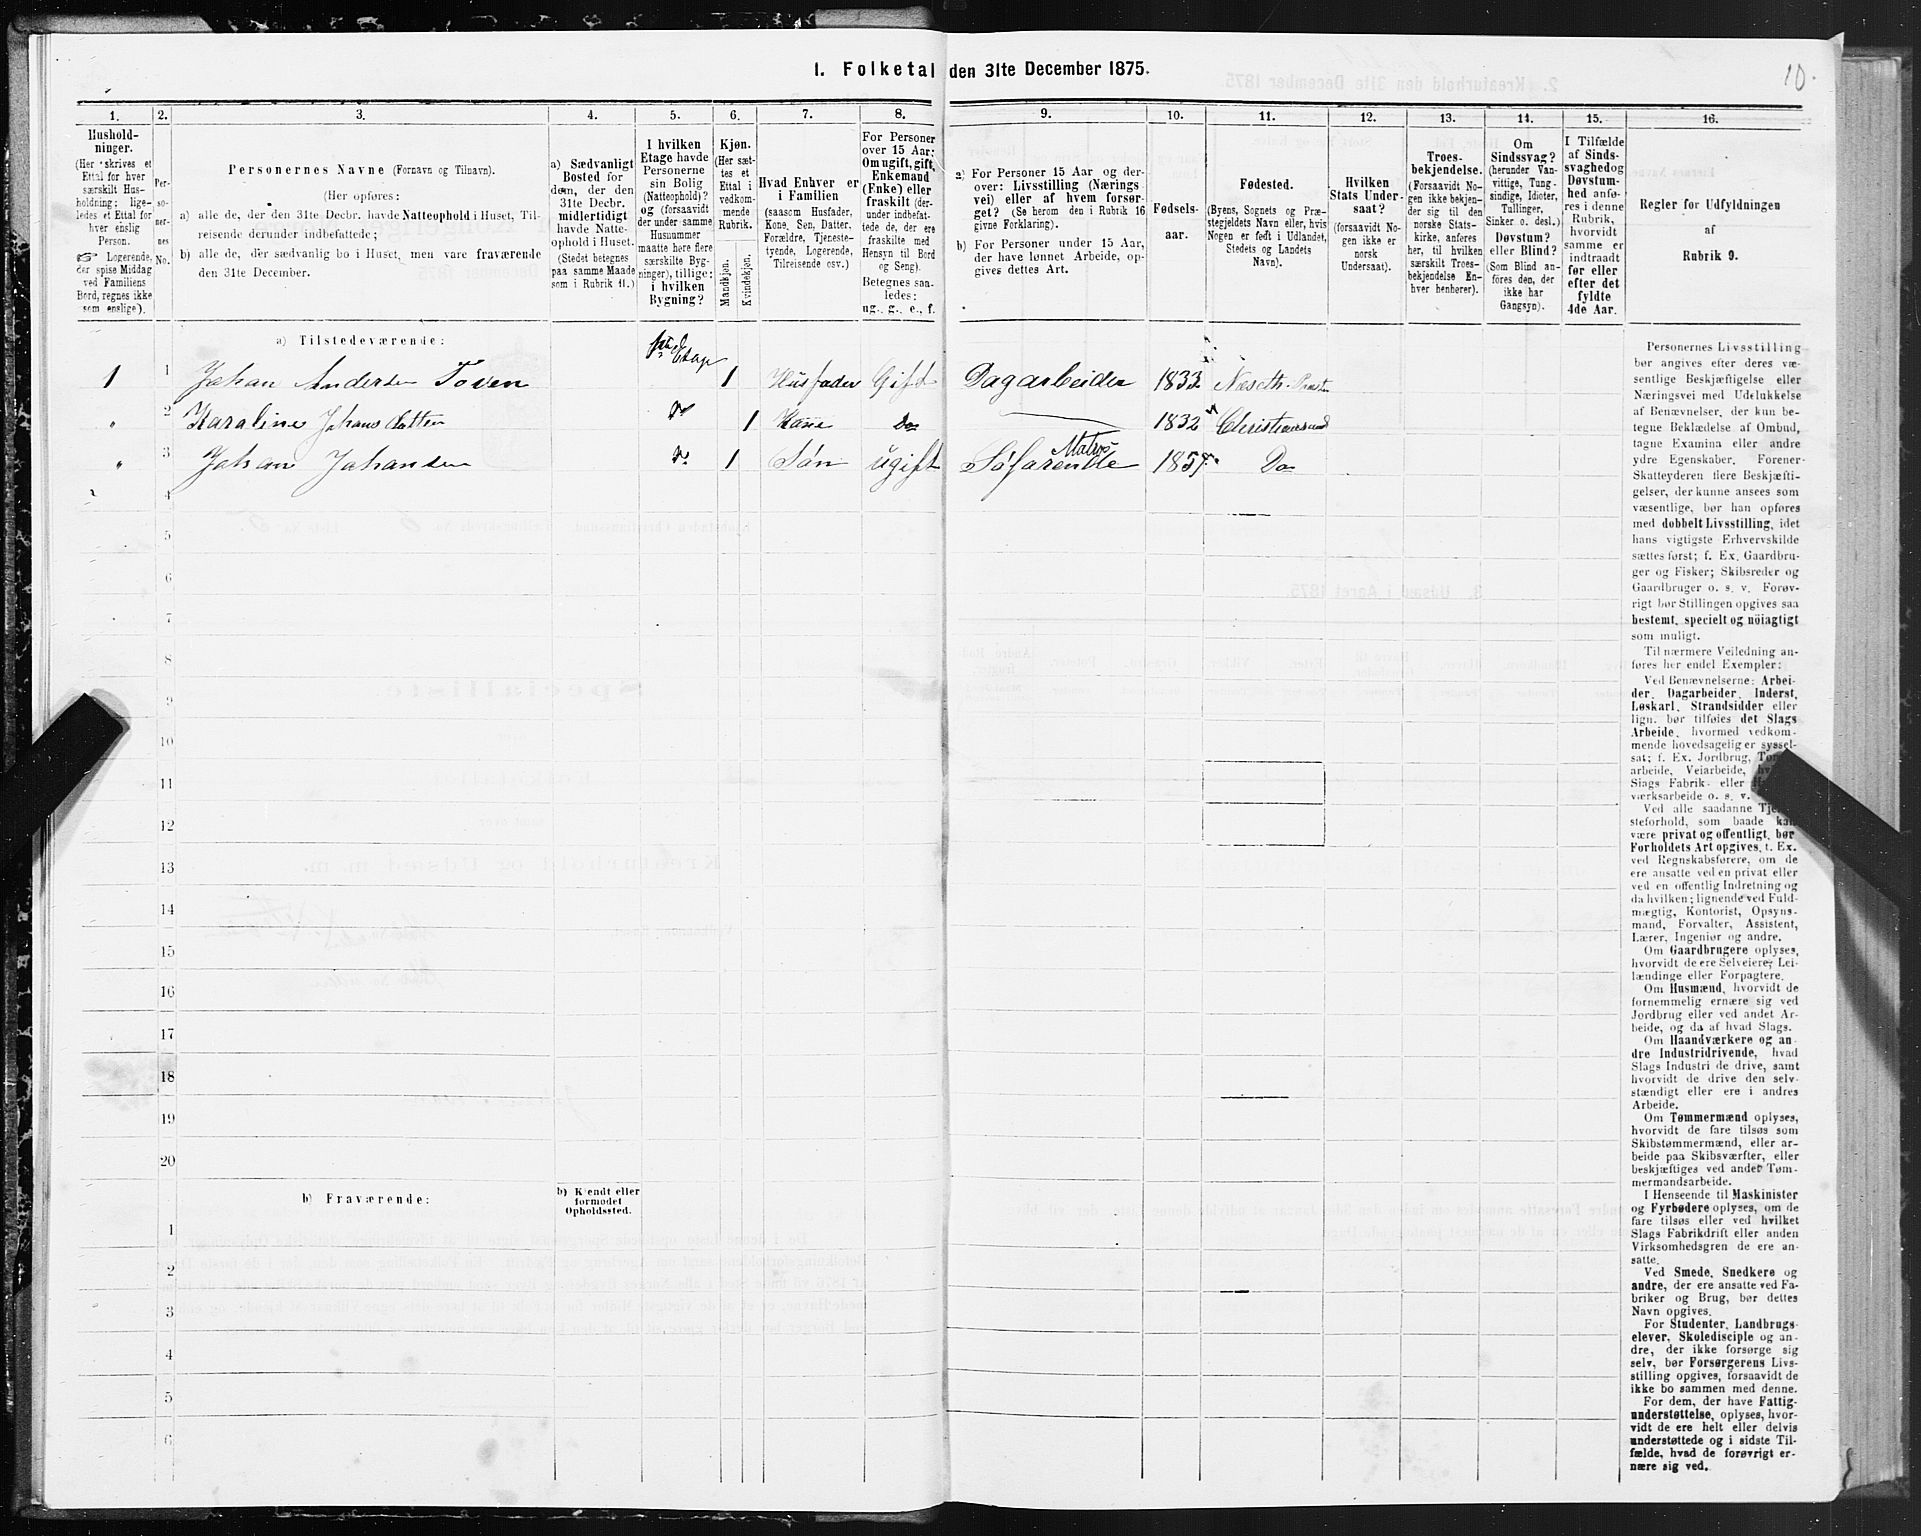 10.
I. Folketal den 31te December 1875.
1. 2. 3. 4. 5. 6. 7. 8. 9. 10. 11. 12. 13. 14. 15. 16.
Hushold-
ninger.
(Her skrives et
Ettal for hver
særskilt Hus-
holdning; lige-
ledes et Ettal for
hver enslig
Person.
☞ Logerende,
der spise Middag
ved Familiens
Bord, regnes ikke
som enslige).
Per-
so-
ner-
nes
No.
Personernes Navne (Fornavn og Tilnavn).
(Her opføres:
a) alle de, der den 31te Decbr. havde Natteophold i Huset, Til-
reisende derunder indbefattede;
b) alle de, der sædvanlig bo i Huset, men vare fraværende
den 31te December.
a) Sædvanligt
Bosted for
dem, der den
31te Decbr.
midlertidigt
havde Natte-
ophold i Huset.
(Stedet betegnes
paa samme Maade
som i Rubrik 11.)
I hvilken
Etage havde
Personerne
sin Bolig
(Natteophold)?
og (forsaavidt
der under samme
Husnummer
maatte høre flere
særskilte Byg-
ninger), tillige:
i hvilken
Bygning?
Kjøn.
(Her sæt-
tes et
Ettal i
vedkom-
mende
Rubrik.
Mandkjøn.
Kvindekjøn.
Hvad Enhver er
i Familien
(saasom Husfader,
Kone, Søn, Datter,
Forældre, Tjeneste-
tyende, Logerende,
Tilreisende osv.)
For Personer
over 15 Aar:
Om ugift, gift,
Enkemand
(Enke) eller
fraskilt (der-
under indbefat-
tede de, der ere
fraskilte med
Hensyn til Bord
og Seng).
Betegnes saa-
ledes:
ug., g., e., f.
a) For Personer 15 Aar og der-
over: Livsstilling (Nærings-
vei) eller af hvem forsør-
get? (Se herom den i Rubrik 16
givne Forklaring).
b) For Personer under 15 Aar,
der have lønnet Arbeide, op-
gives dettes Art.
Fødsels-
aar.
Fødested.
(Byens, Sognets og Præ-
stegjeldets Navn eller, hvis
Nogen er født i Udlandet,
Stedets og Landets
Navn).
Hvilken
Stats Under-
saat?
(forsaavidt No-
gen ikke er
norsk
Undersaat).
Troes-
bekjendelse.
(Forsaavidt No-
gen ikke bekjen-
der sig til den
norske Stats-
kirke, anføres
her, til hvilken
særskilt Troes-
bekjendelse En-
hver henhører).
Om
Sindssvag?
(herunder Van-
vittige, Tung-
sindige, Idioter,
Tullinger,
Sinker o. desl.)
Døvstum?
eller Blind?
(Som Blind an-
føres den, der
ikke har
Gangsyn).
I Tilfælde
af Sinds-
svaghed og
Døvstum-
hed anfø-
res i denne
Rubrik,
hvorvidt
samme er
indtraadt
før eller
efter det
fyldte
4de Aar.
Regler for Udfyldningen
af
Rubrik 9.
a) Tilstedeværende:
1 1 Johan Andersen Toven Etage 1 Husfader Gift Dagarbeider 1833 Næseth Præst
" 2 Karaline Johans Datter Do 1 Kone Do 1832 Christiansund
" 3 Johan Johansen Do 1 Søn ugift Søfarende Matros 1857 Do
4
5
6
7
8
9
10
11
12
13
14
15
16
17
18
19
20
b) Fraværende:
b) Kjendt eller
formodet
Opholdssted.
1
2
3
4
5
6
Personernes Livsstilling
bør angives efter deres væ-
sentlige Beskjæftigelse eller
Næringsvei med Udelukkelse
af Benævnelser, der kun be-
tegne Beklædelse af Ombud,
tagne Examina eller andre
ydre Egenskaber. Forener
Skatteyderen flere Beskjæfti-
gelser, der kunne ansees som
væsentlige, bør han opføres
med dobbelt Livsstilling, idet
hans vigtigste Erhvervskilde
sættes først; f. Ex. Gaardbru-
ger og Fisker; Skibsreder og
Gaardbruger o. s. v. Forøv-
rigt bør Stillingen opgives saa
bestemt, specielt og nöiagtigt
som muligt.
Til nærmere Veiledning an-
føres her endel Exempler:
Ved Benævnelserne: Arbei-
der, Dagarbeider, Inderst,
Løskarl, Strandsidder eller
lign. bør tilføies det Slags
Arbeide, hvormed vedkom-
mende hovedsagelig er syssel-
sat; f. Ex. Jordbrug,
arbeide, Veiarbeide,
Slags Fabrik- eller
værksarbeide o. s. v.
Ved alle saadanne
steforhold, som baade kan
være privat og offentligt, bør
Forholdets Art opgives, f. Ex.
ved Regnskabsførere, om de
ere ansatte ved en privat eller
ved en offentlig Indretning og
da hvilken; lignende ved Fuld-
mægtig, Kontorist, Opsyns-
mand, Forvalter, Assistent,
Lærer, Ingeniør og andre.
Om Gaardbrugere oplyses,
hvorvidt de ere Selveiere, Lei-
lændinge eller Forpagtere.
Om Husmænd, hvorvidt de
fornemmelig ernære sig ved
Jordbrug eller ved andet Ar-
beide, og da af hvad Slags.
Om Haandværkere og an-
dre Industridrivende, hvad
Slags Industri de drive, samt
hvorvidt de drive den selv-
stændigt eller ere i andres
Arbeide.
Om Tømmermænd oplyses,
hvorvidt de fare tilsøs som
Skibstømmermænd, eller ar-
beide paa Skibsværfter, eller
beskjæftiges ved andet Tøm-
mermandsarbeide.
I Henseende til Maskinister
og Fyrbødere oplyses, om de
fare tilsøs eller ved hvilket
Slags Fabrikdrift eller anden
Virksomhedsgren de ere an-
satte.
Ved Smede, Snedkere og
andre, der ere ansatte ved Fa-
briker og Brug, bør dettes
Navn opgives.
For Studenter, Landbrugs-
elever, Skoledisciple og an-
dre, der ikke forsørge sig
selv, bør Forsørgerens Livs-
stilling opgives, forsaavidt de
ikke bo sammen med denne.
For dem, der have Fattig-
understøttelse, oplyses, hvor-
vidt de ere helt eller delvis
understøttede og i sidste Til-
fælde, hvad de forøvrigt er-
nære sig ved.